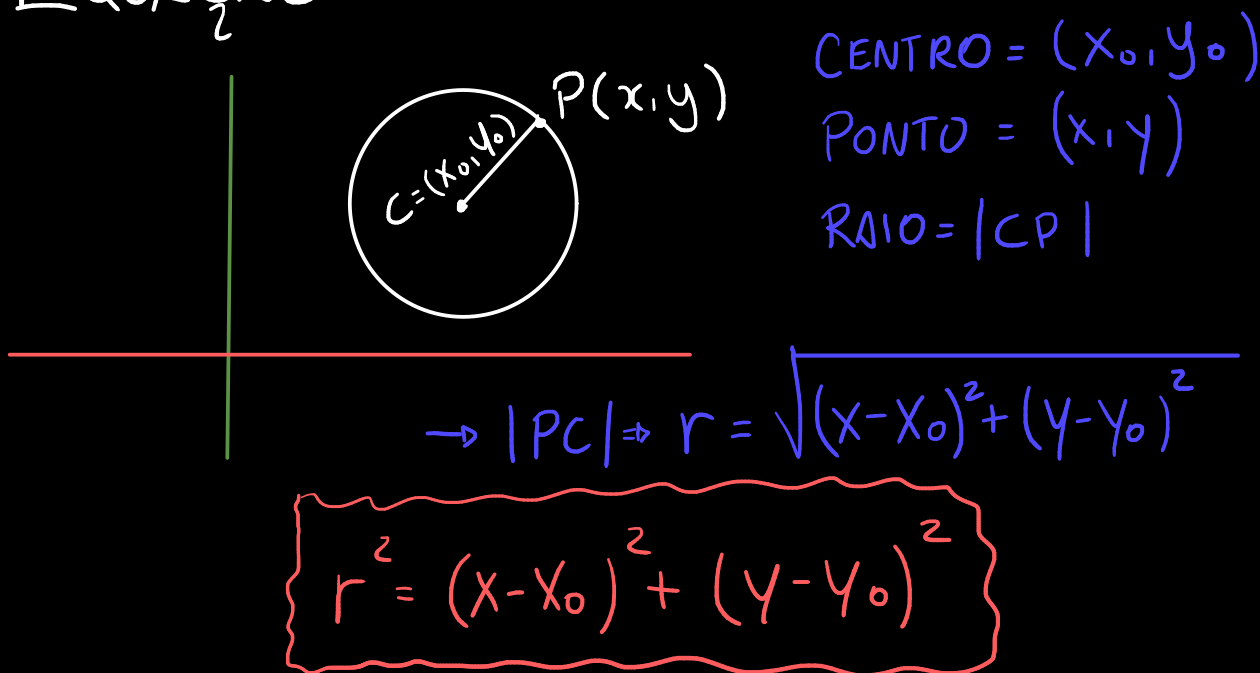 2
P(x,y)
C=(x₀,y₀)
CENTRO = (x₀,y₀)
PONTO = (x,y)
RAIO = |CP|
→ |PC| ⇒ r = √((x-x₀)²+(y-y₀)²)
r² = (x-x₀)² + (y-y₀)²